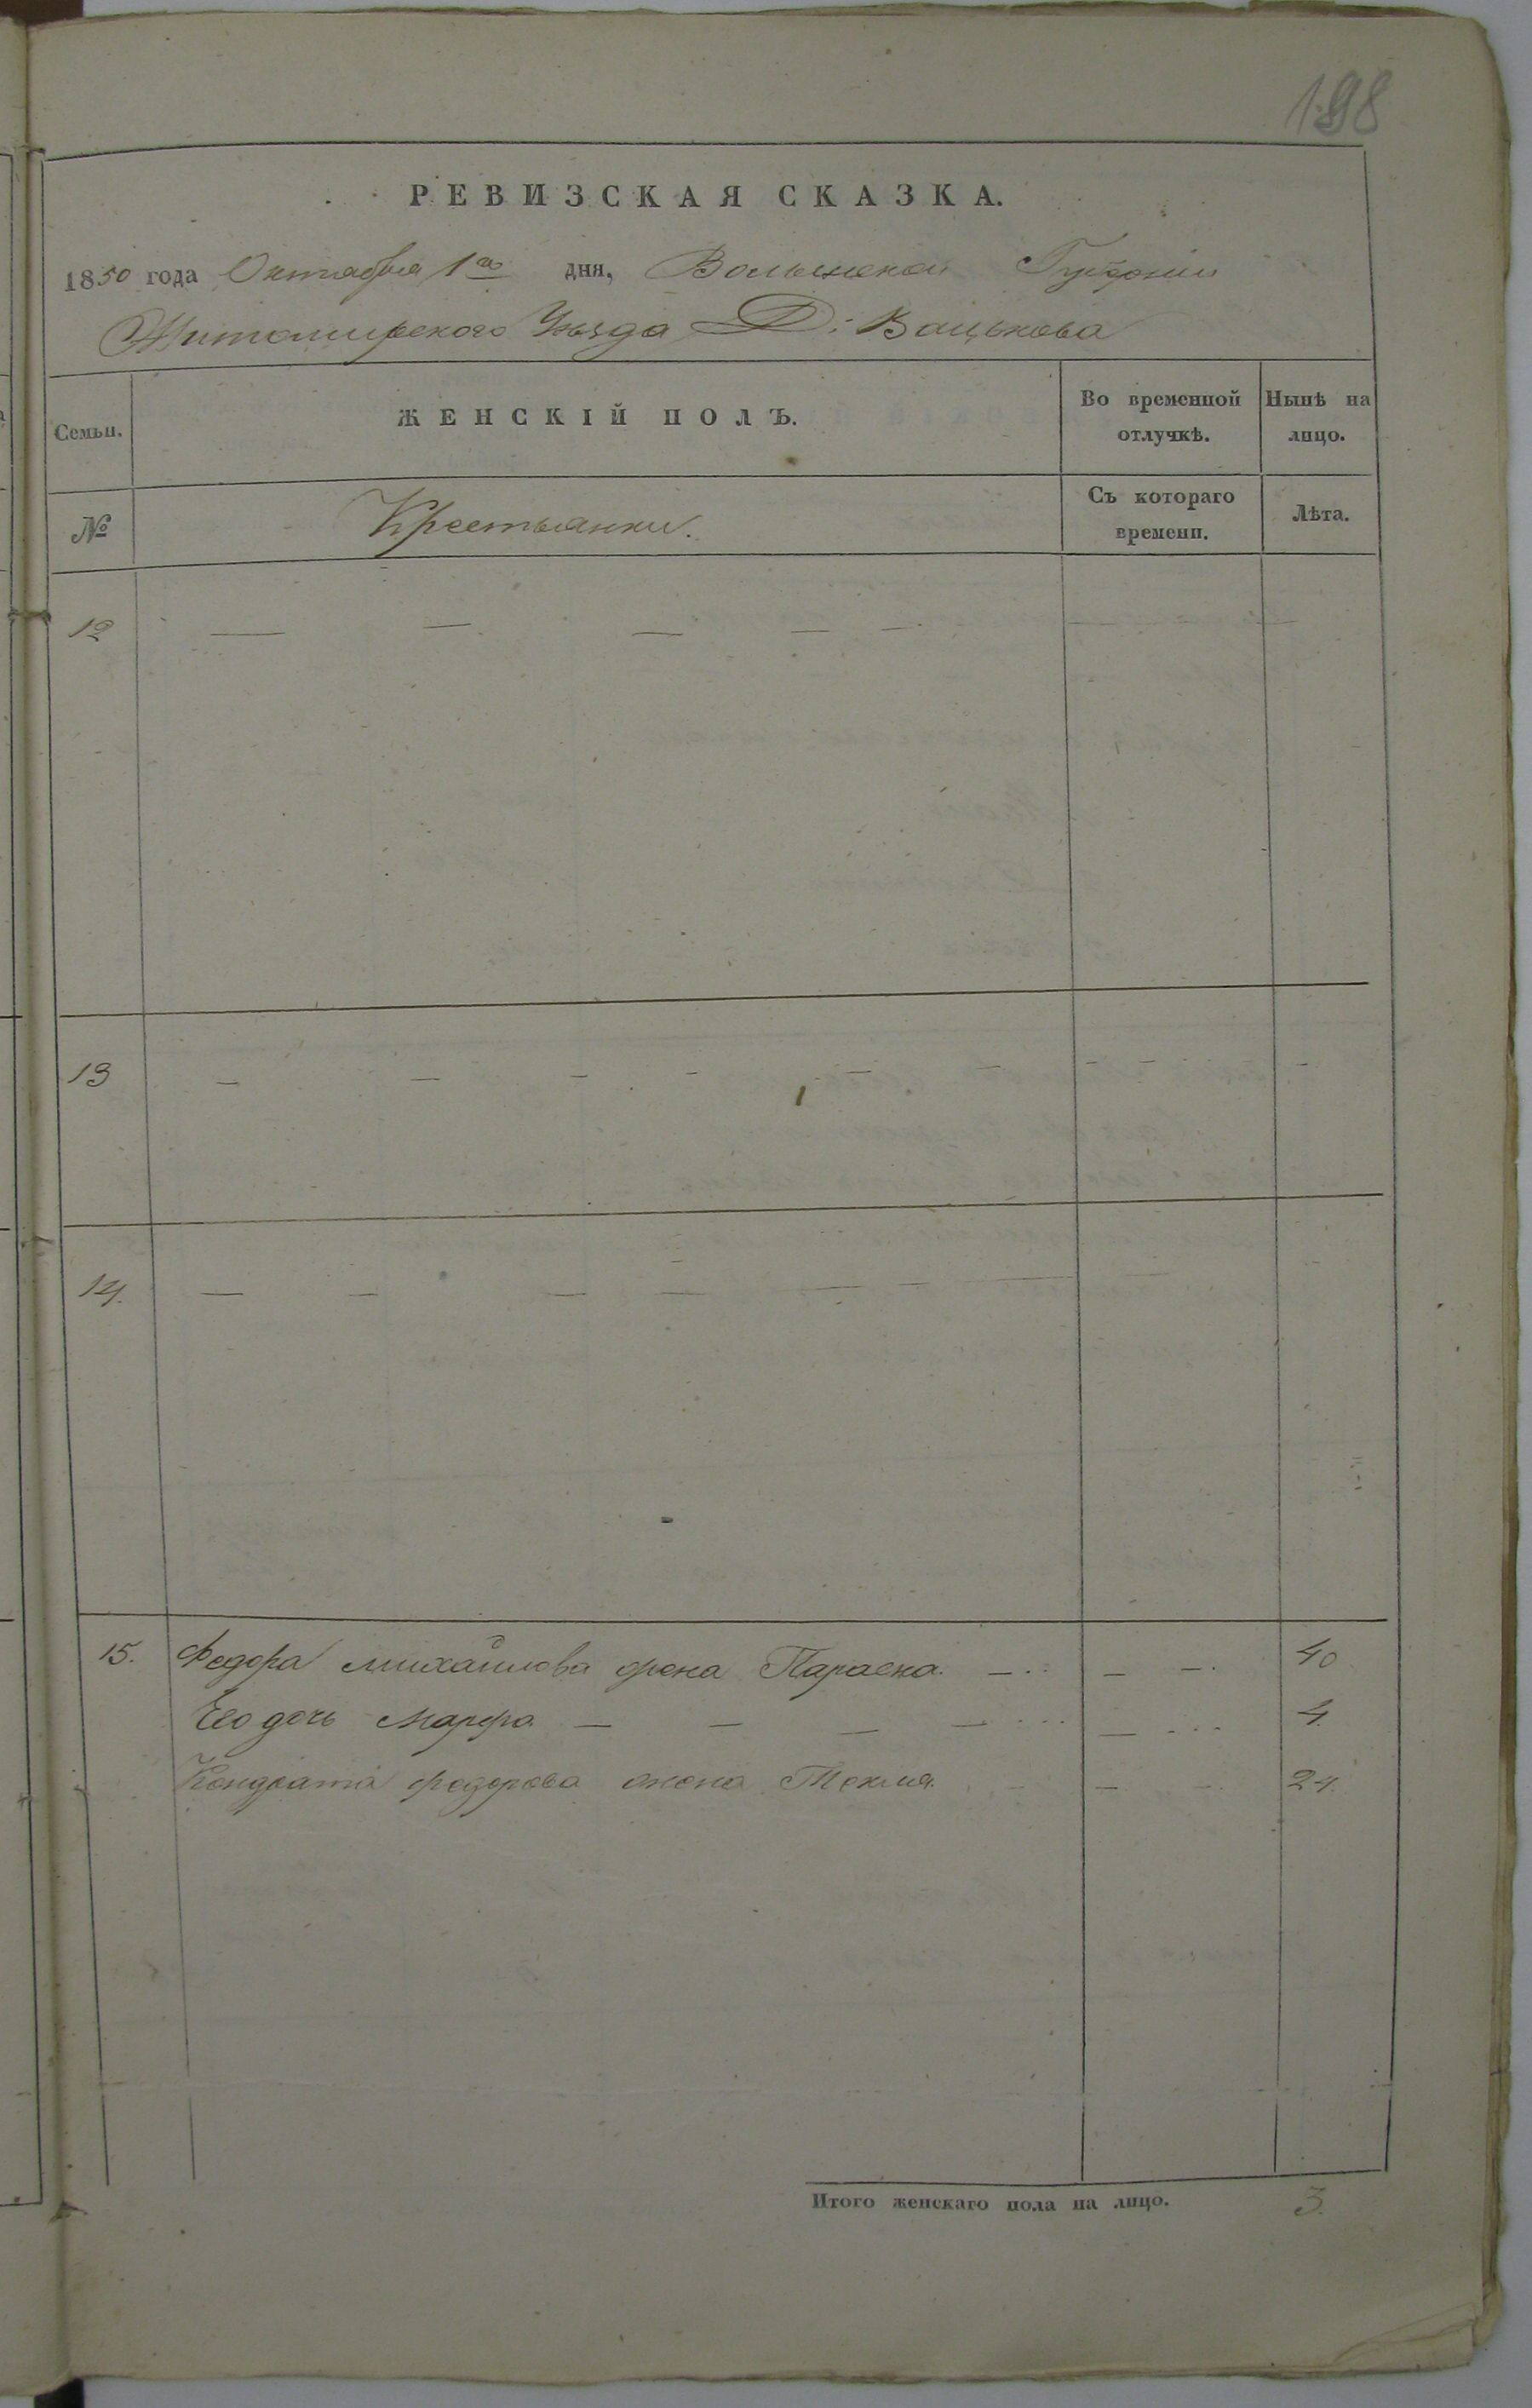 198
РЕВИЗСКАЯ СКАЗКА.
1850 года Октября 1го дня, Волынской Губерніи
Житомирского Уѣзда Д: Вацькова
Семьи. ЖЕНСКІЙ ПОЛЪ. Во временной отлучкѣ. Нынѣ на лицо.
№ Крестьянки. Съ котораго времени. Лѣта.
12 — — — — —
13 — — — — — — — — —
14. — — — — — — — —
15. Федора Михайлова жена Параска — — — 40
Его дочь Марфа — — — — — 4.
Кондрата Федорова жена Текля — — — 24.
Итого женскаго пола на лицо. 3.